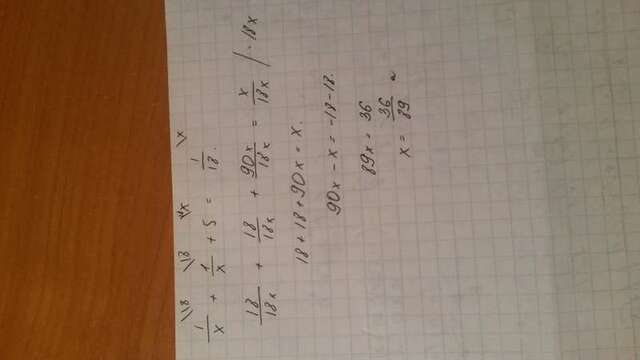 \18 \18 \x \x
1/x + 1/x + 5 = 1/18.
18/18x + 18/18x + 90x/18x = x/18x | · 18x
18 + 18 + 90x = x.
90x - x = -18 - 18.
89x = 36
x = 36/89